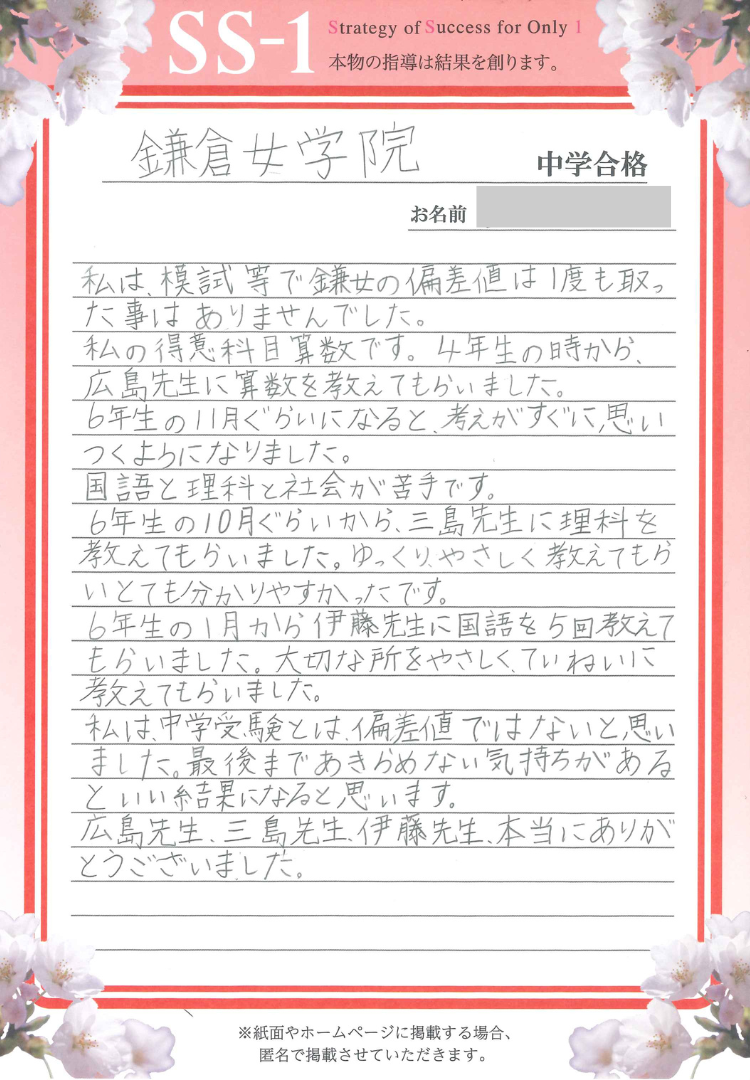 SS-1
Strategy of Success for Only 1
本物の指導は結果を創ります。
鎌倉女学院
中学合格
お名前
私は、模試等で鎌女の偏差値は1度も取っ
た事はありませんでした。
私の得意科目算数です。4年生の時から、
広島先生に算数を教えてもらいました。
6年生の11月ぐらいになると、考えがすぐに思い
つくようになりました。
国語と理科と社会が苦手です。
6年生の10月ぐらいから、三島先生に理科を
教えてもらいました。ゆっくり、やさしく教えてもら
いとても分かりやすかったです。
6年生の1月から伊藤先生に国語を5回教えて
もらいました。大切な所をやさしく、ていねいに
教えてもらいました。
私は、中学受験とは、偏差値ではないと思い
ました。最後まであきらめない気持ちがある
といい結果になると思います。
広島先生、三島先生、伊藤先生、本当にありが
とうございました。
※紙面やホームページに掲載する場合、
匿名で掲載させていただきます。